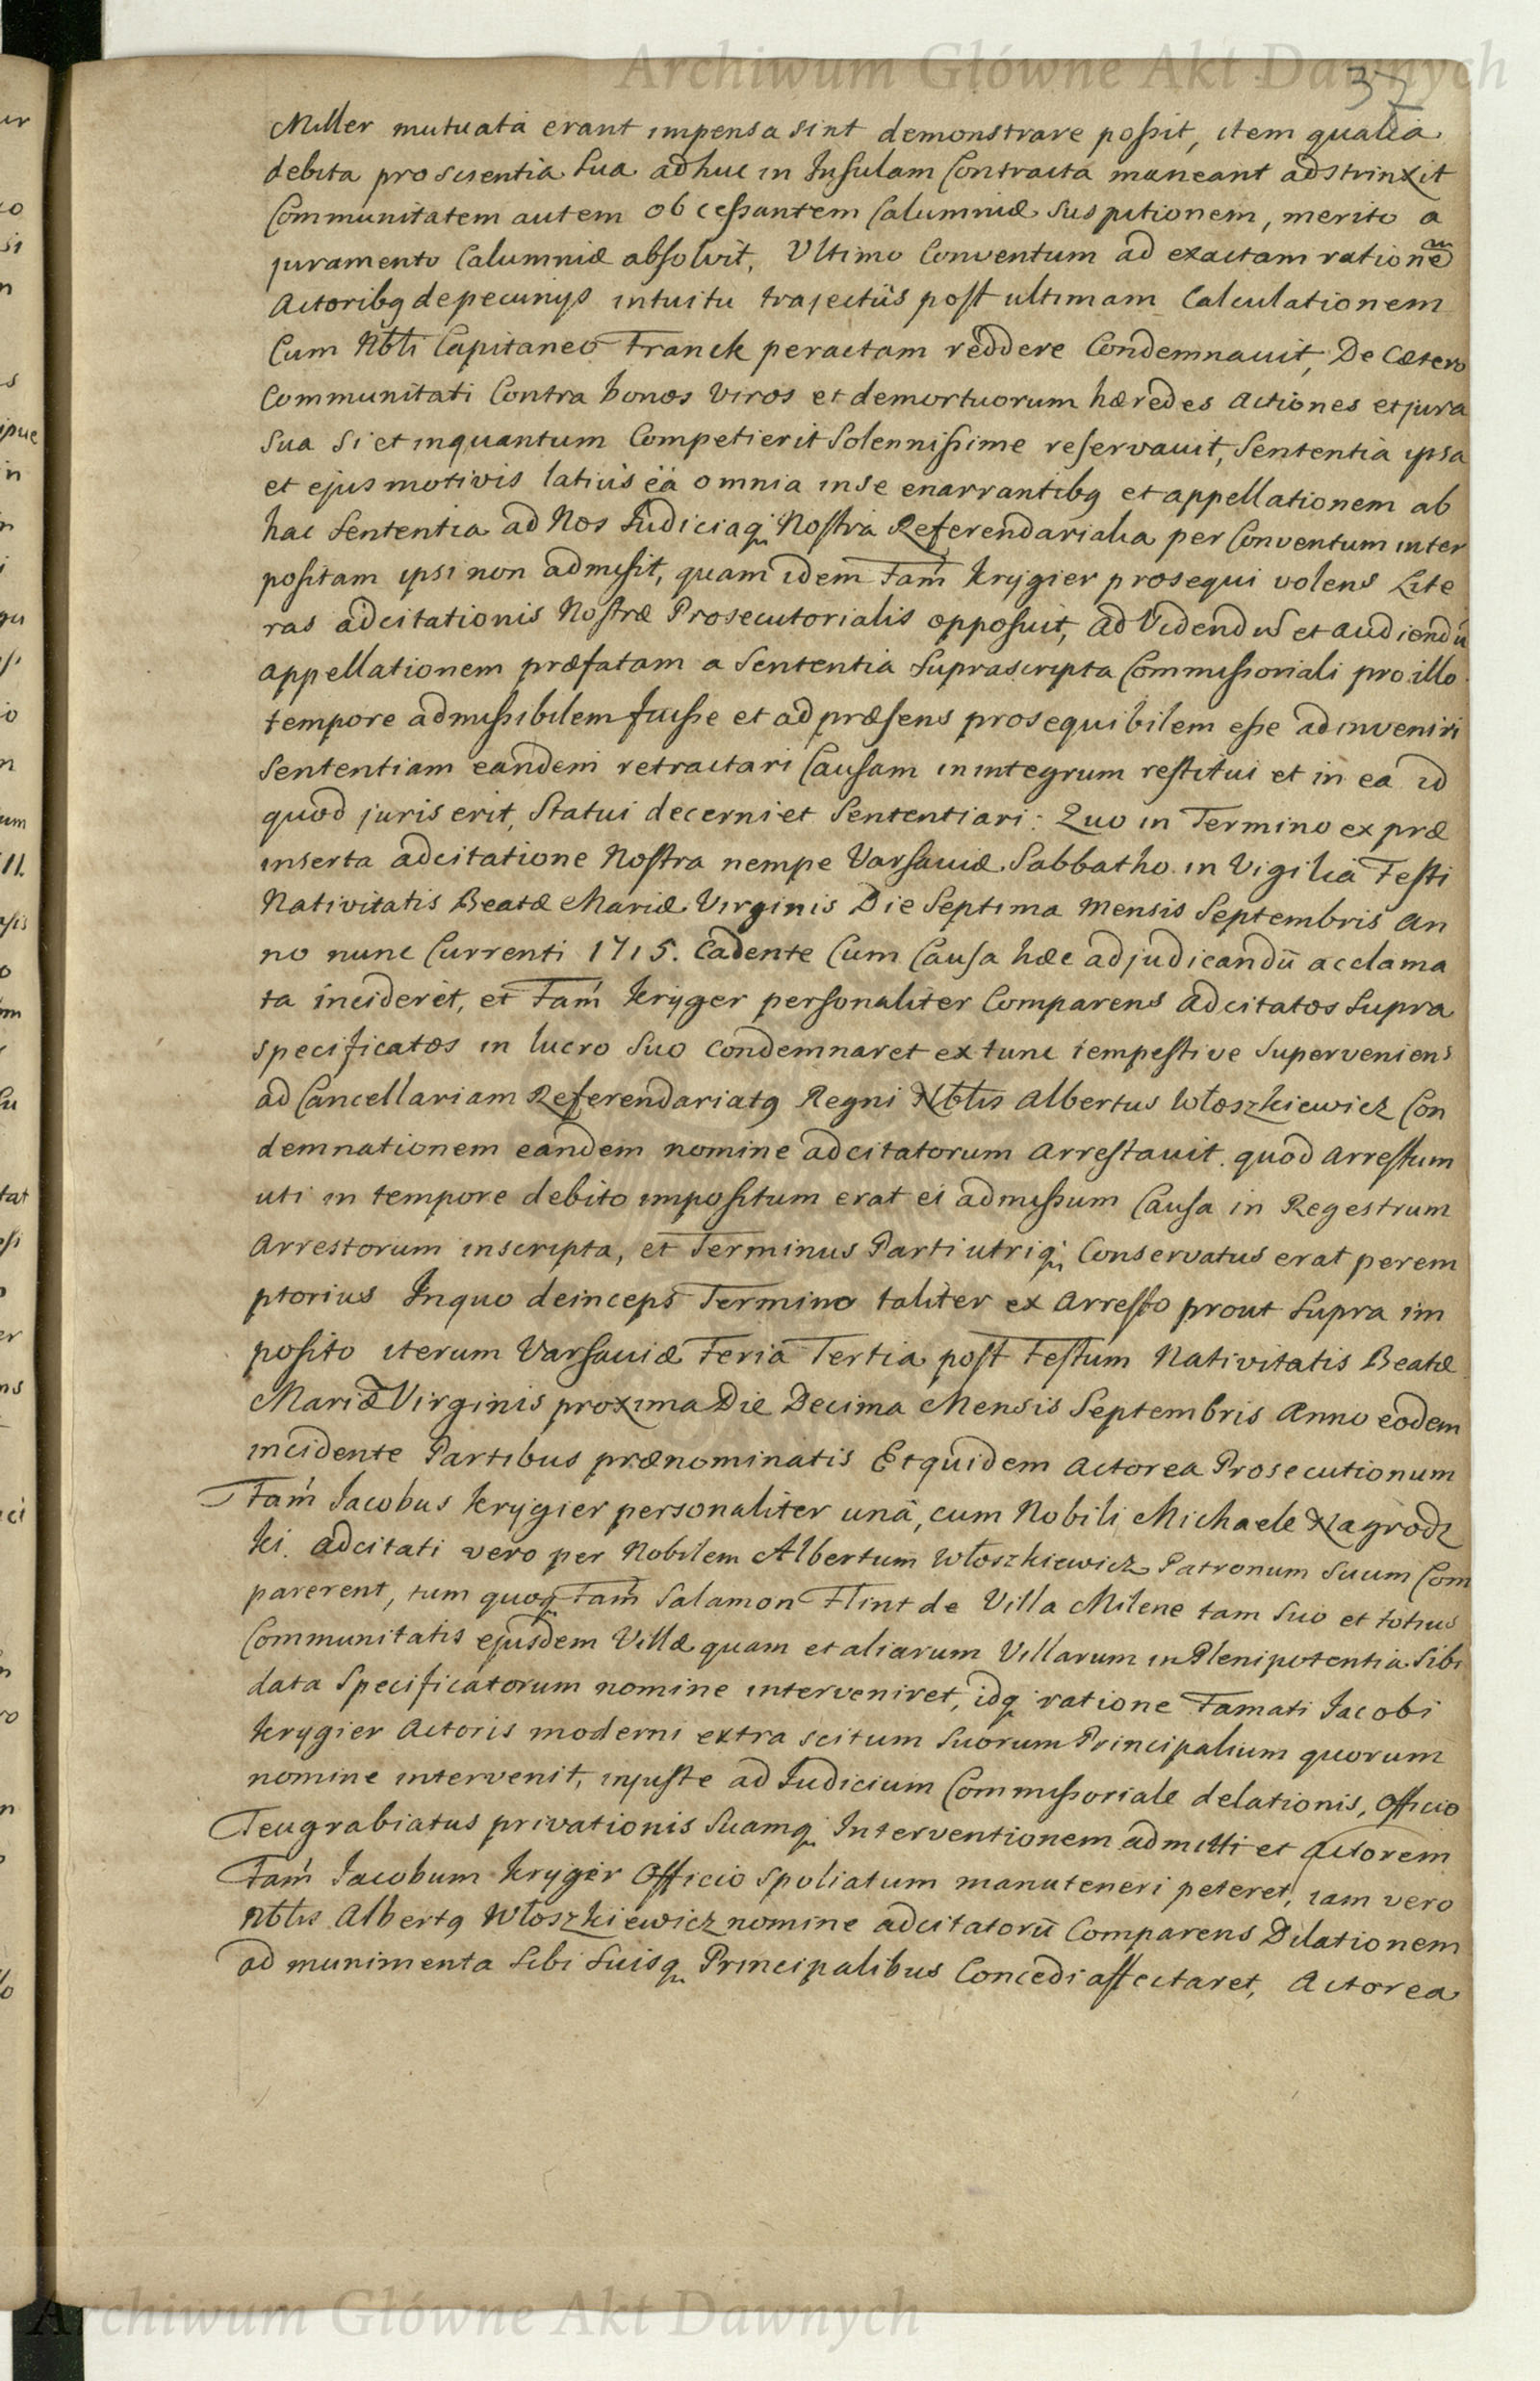 Archiwum Główne Akt Dawnych
37
Miller mutuata erant impensa sint demonstrare possit, item qualia
debita pro scientia sua adhuc in Insulam Contracta maneant adstrinxit
Communitatem autem ob cessantem Calumniæ suspitionem, merito a
juramento Calumniæ absolvit, Ultimo Conventum ad exactam rationẽ
Actoribꝯ de pecunijs intuitu trajectûs post ultimam Calculationem
Cum Nbli Capitaneo Franck peractam reddere Condemnavit, De Cætero
Communitati Contra bonos Viros et demortuorum hæredes Actiones et jura
sua si et inquantum Competierit Solennissime reservavit, Sententia ipsa
et ejus motivis latius ea omnia in se enarrantibꝯ et appellationem ab
hac Sententia ad Nos Iudiciaq; Nostra Referendarialia per Conventum inter
positam ipsi non admisit, quam idem Fam Krygier prosequi volens Lite
ras adcitationis Nostræ Prosecutorialis opposuit, ad Videndũ et audiendũ
appellationem præfatam a Sententia suprascripta Commissoriali pro illo
tempore admissibilem fuisse et ad præsens prosequibilem esse adinveniri
Sententiam eandem retractari Causam in integrum restitui et in ea id
quod juris erit, Statui decerni et Sententiari: Quo in Termino ex præ
inserta adcitatione Nostra nempe Varsaviæ Sabbatho in Vigilia Festi
Nativitatis Beatæ Mariæ Virginis Die Septima Mensis Septembris An
no nunc Currenti 1715. Cadente Cum Causa hæc adjudicandũ acclama
ta incideret, et Fam Kryger personaliter Comparens Adcitatos supra
specificatos in lucro suo Condemnaret extunc tempestive superveniens
ad Cancellariam Referendariatꝯ Regni Nblis Albertus Włoszkiewicz Con
demnationem eandem nomine adcitatorum Arrestavit. quod Arrestum
uti in tempore debito impositum erat ei admissum Causa in Regestrum
Arrestorum inscripta, et Terminus Parti utriq; Conservatus erat perem
ptorius In quo deinceps Termino taliter ex Arresto prout supra im
posito iterum Varsaviæ Feria Tertia post Festum Nativitatis Beatæ
Mariæ Virginis proxima Die Decima Mensis Septembris Anno eodem
incidente Partibus prænominatis Et quidem Actorea Prosecutionum
Fam Jacobus Krygier personaliter unà, cum Nobili Michaele Nagrodz
ki. adcitati vero per Nobilem Albertum Włoszkiewicz Patronum suum Com
parerent, tum quoq Fam Salamon Flint de Villa Milene tam suo et totius
Communitatis ejusdem Villæ quam et aliarum Villarum in Plenipotentia sibi
data Specificatorum nomine interveniret, idq; ratione Famati Jacobi
Krygier Actoris moderni extra scitum suorum Principalium quorum
nomine intervenit, injuste ad Iudicium Commissoriale delationis, Officio
Teugrabiatus privationis suamq; Interventionem admitti et Actorem
Fam Jacobum Kryger Officio spoliatum manuteneri peteret, iam vero
Nblis Albertꝯ Włoszkiewicz nomine adcitatorũ Comparens Dilationem
ad munimenta sibi suisq; Principalibus Concedi affectaret, Actorea
Archiwum Główne Akt Dawnych